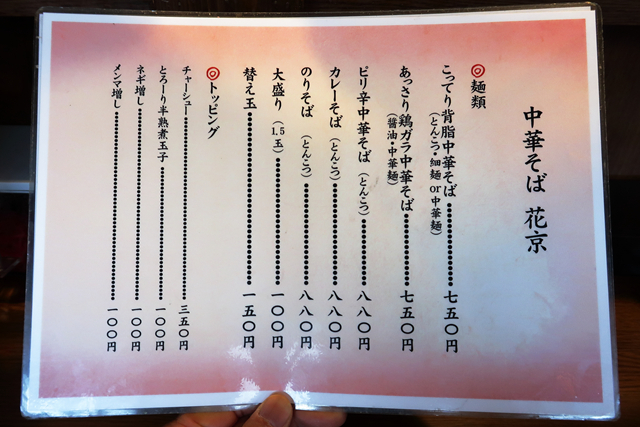 中華そば 花京
◎麺類
こってり背脂中華そば……七五〇円
(とんこつ・細麺or中華麺)
あっさり鶏ガラ中華そば……七五〇円
(醤油・中華麺)
ピリ辛中華そば(とんこつ)……八八〇円
カレーそば(とんこつ)……八八〇円
のりそば(とんこつ)……八八〇円
大盛り(1.5玉)……一〇〇円
替え玉……一五〇円
◎トッピング
チャーシュー……三五〇円
とろーり半熟煮玉子……一〇〇円
ネギ増し……一〇〇円
メンマ増し……一〇〇円